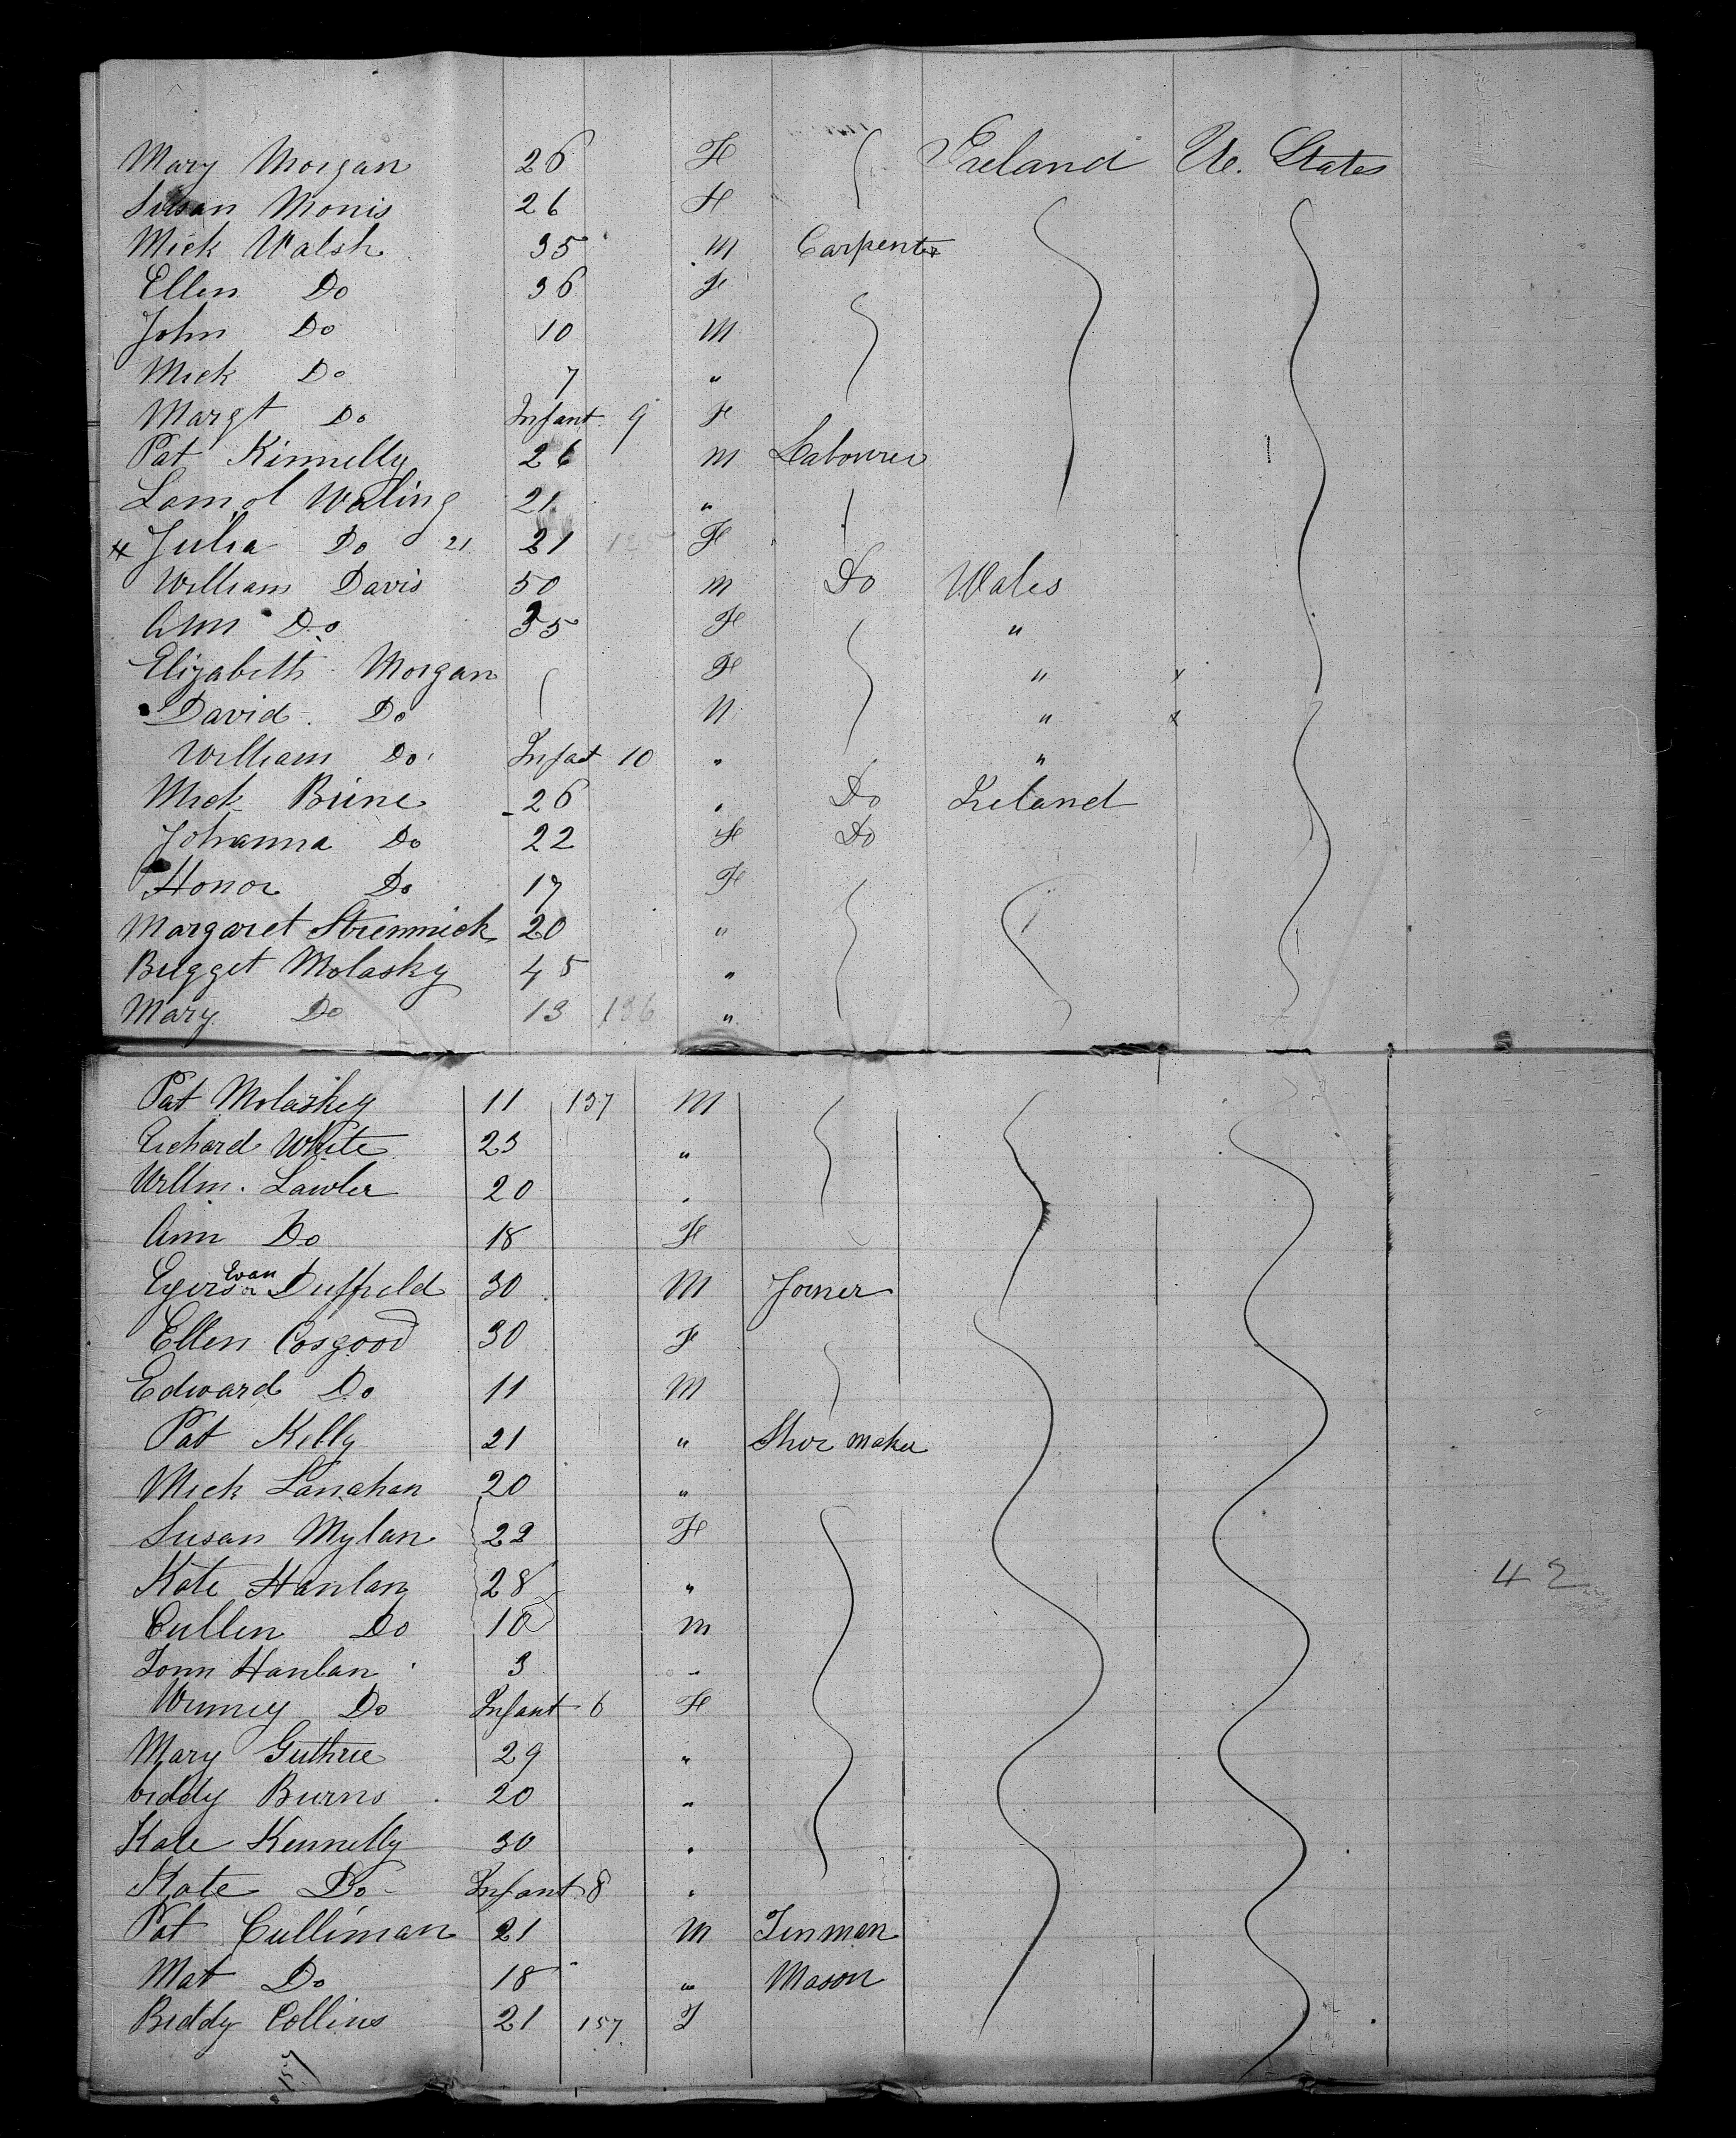 Mary Morgan 26 F Ireland U. States
Susan Monis 26 F
Mick Walsh 35 M Carpenter
Ellen Do 36 F
John Do 10 M
Mick Do 7 "
Margt Do Infant 9 F
Pat Kinnelly 26 M Labourer
Waling 21 "
Julia Do 21 21 125 F
William Davis 50 M Do Wales
Ann Do 35 F "
Elizabeth Morgan F "
David Do M "
William Do Infat 10 " "
Mick Brine 26 " Do Ireland
Johanna Do 22 F Do
Honor Do 17 F
Margaret Strennick 20 "
Brigget Molasky 45 "
Mary Do 13 136 "
Pat Molaskey 11 137 M
Richard White 23 "
Willm. Lawler 20 "
Ann Do 18 F
Evan
Duffield 30 M Joiner
Ellen Cosgood 30 F
Edward Do 11 M
Pat Kelly 21 " Shoe maker
Mick Lanahan 20 "
Susan Mylan 22 F
Kate Hanlan 28 "
Cullen Do 10 M
Tonn Hanlan 3 "
Winney Do Infant 6 F
Mary Guthrie 29 "
biddy Burns 20 "
Kate Kennelly 30 "
Kate Do Infant 8 "
Pat Culliman 21 M Tinman
Mat Do 18 " Mason
Biddy Collins 21 157 F
157
42